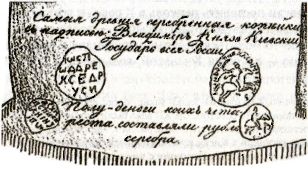 Самыя древнія серебренныя копѣйки
съ надписью: Владимиръ Князь Кіевскій
Государь всея Россіи.
КНСП
ШАДРЕ
КСЕДР
УСИ
Полу-деньги коихъ четы
реста составляли рубль
серебра.